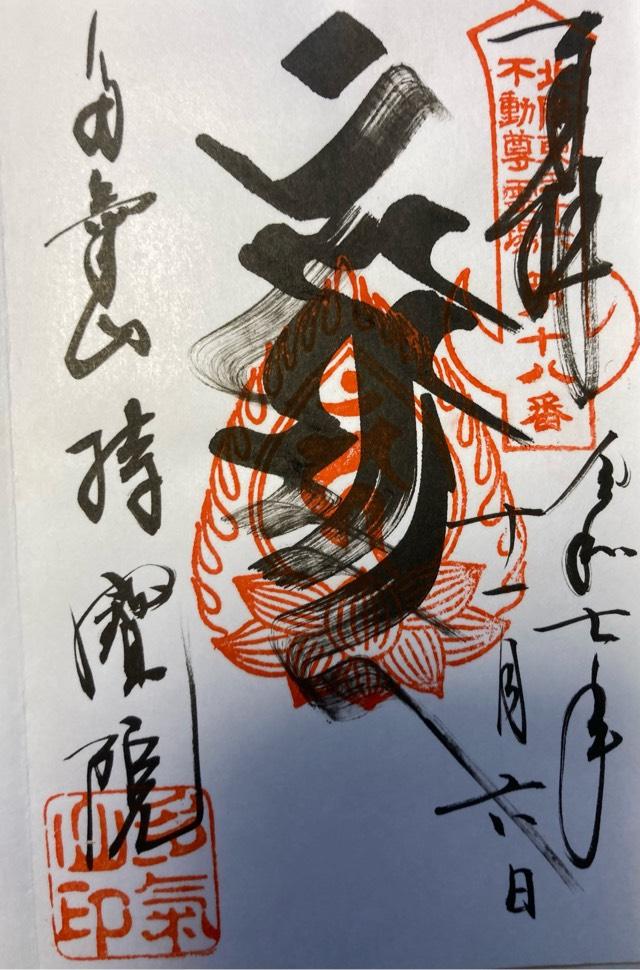 奉拝
北関東三十六
不動尊霊場
第十八番
令和七年
十一月六日
多氣山 持寳院
多氣山印